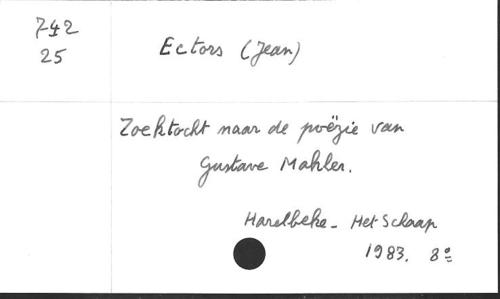 742
25
Ectors (Jean)
Zoektocht naar de poëzie van
Gustave Mahler.
Harelbeke - Het Schaap
1983. 8º